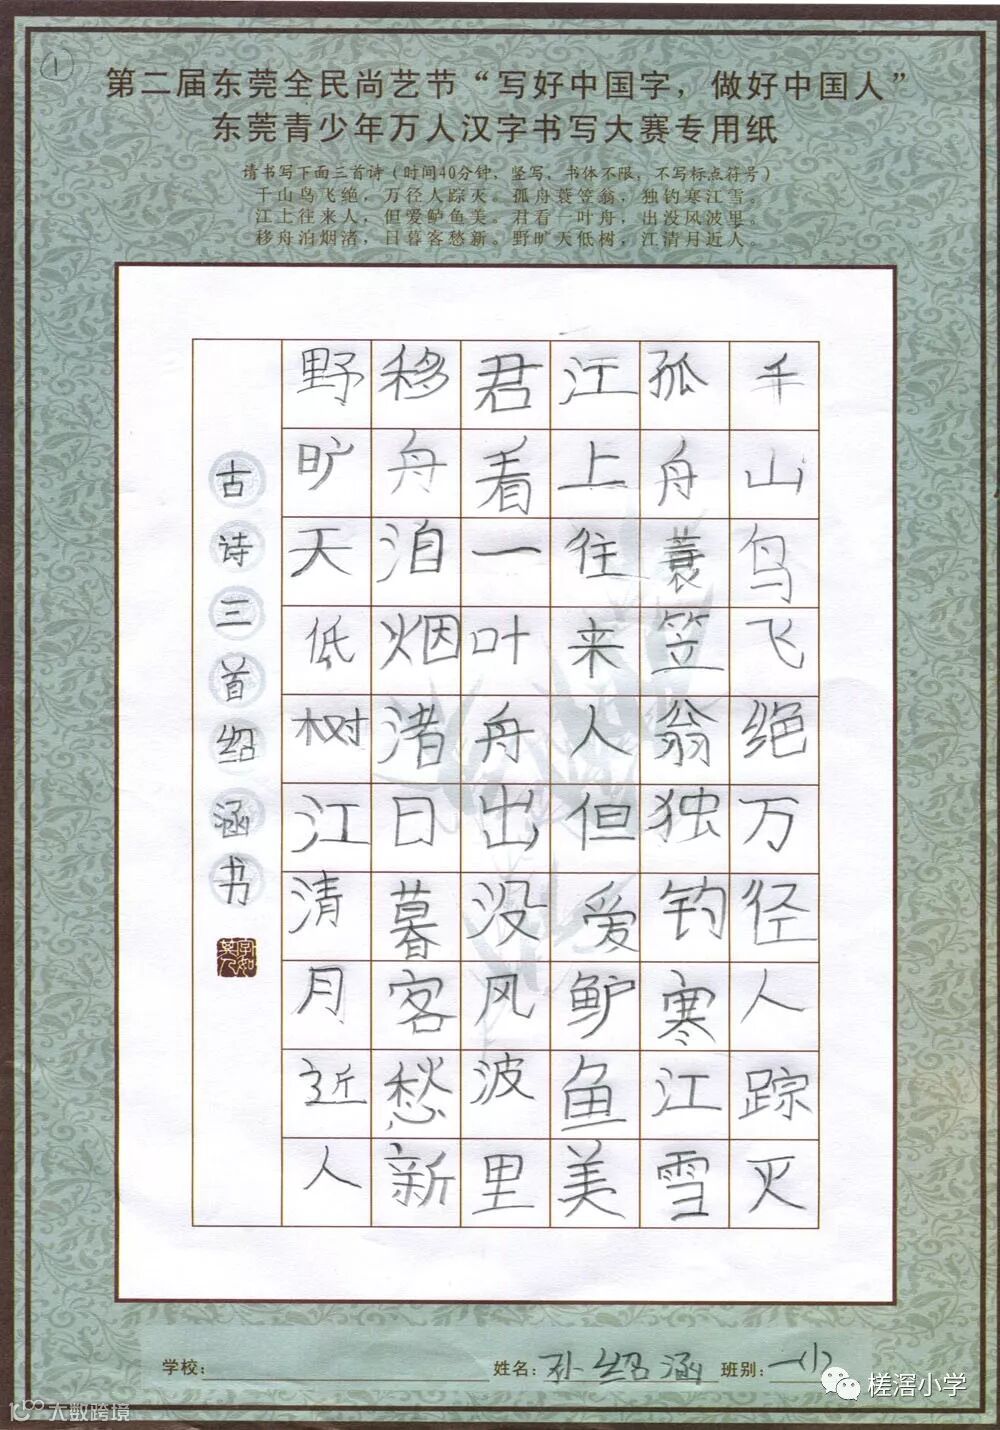 ①
第二届东莞全民尚艺节“写好中国字，做好中国人”
东莞青少年万人汉字书写大赛专用纸
请书写下面三首诗（时间40分钟，竖写，书体不限，不写标点符号）
千山鸟飞绝，万径人踪灭。孤舟蓑笠翁，独钓寒江雪。
江上往来人，但爱鲈鱼美。君看一叶舟，出没风波里。
移舟泊烟渚，日暮客愁新。野旷天低树，江清月近人。
千山鸟飞绝万径人踪灭
孤舟蓑笠翁独钓寒江雪
江上往来人但爱鲈鱼美
君看一叶舟出没风波里
移舟泊烟渚日暮客愁新
野旷天低树江清月近人
古诗三首绍涵书
字如其人
学校： 姓名：孙绍涵 班别：一
槎滘小学
大数跨境